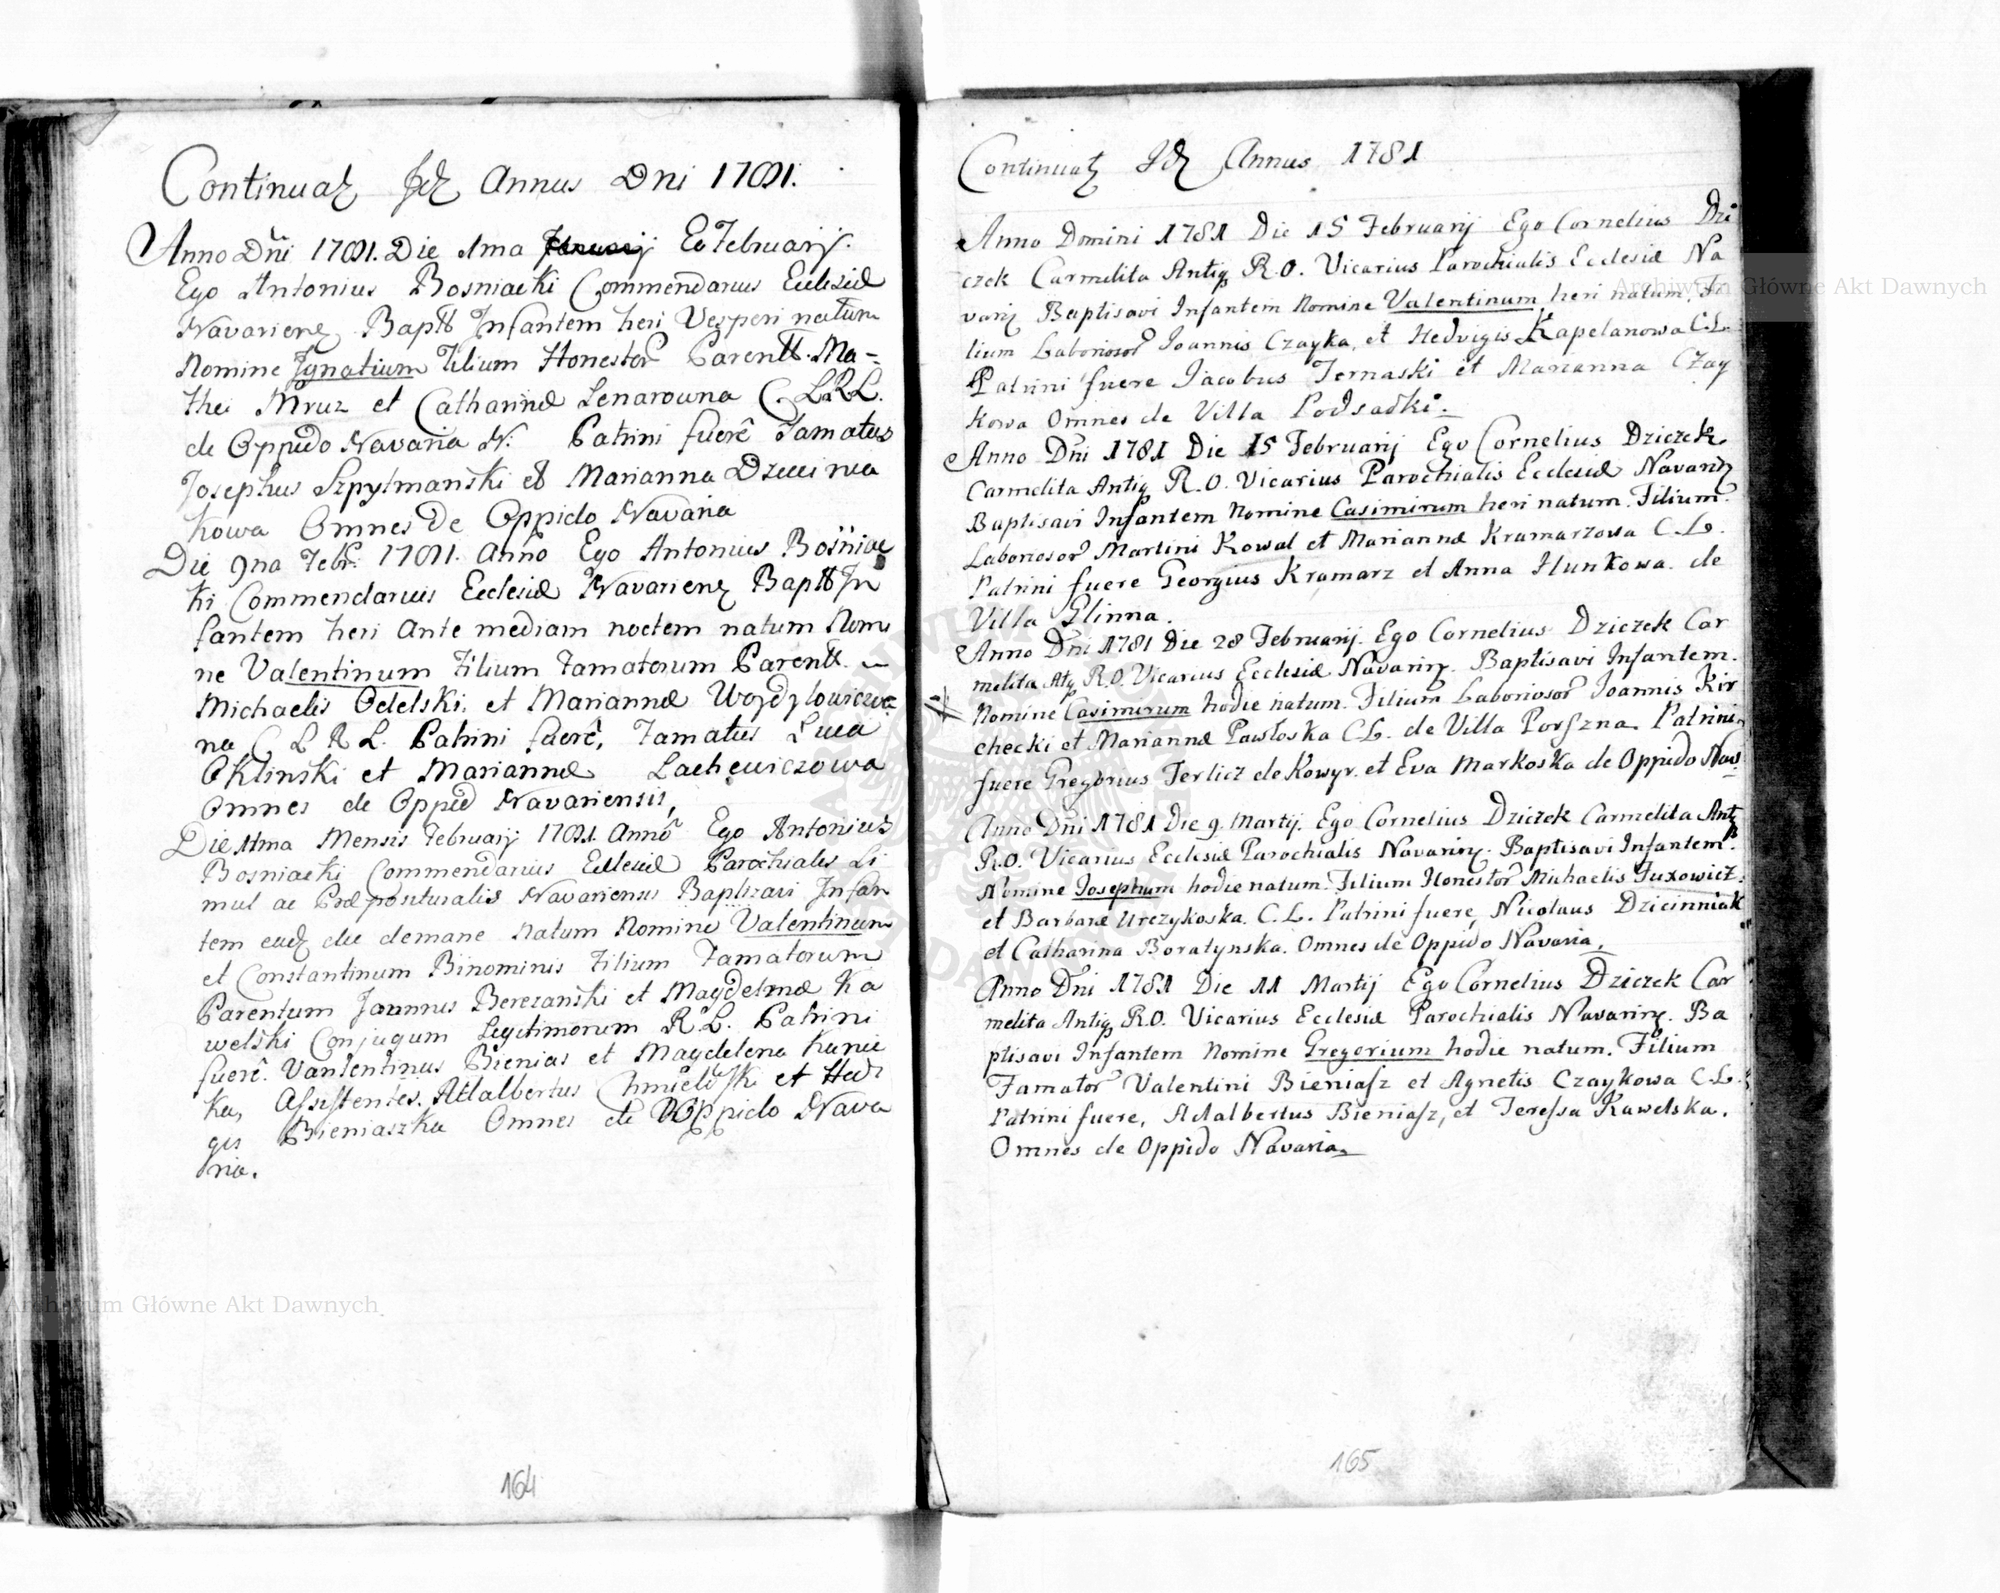 Continuat Id Annus Dni 1781.
Anno Dni 1781. Die 1ma Februarij.
Ego Antonius Bosniacki Commendarius Ecclesiæ
Navariens Bapts Infantem heri Vesperi natum
Nomine Ignatium Filium Honestor Parentt. Ma-
thei Mruz et Catharinæ Lenarowna C. L. R. L.
de Oppido Navaria N. Patrini fuerē Famatus
Josephus Szpytmanski et Marianna Dzieinia
kowa Omnes de Oppido Navaria
Die 9na Febr. 1781. Anno Ego Antonius Bosniac
ki Commendarius Ecclesiæ Navariens Baptt In
fantem heri Ante mediam noctem natum Nomi
ne Valentinum Filium Famatorum Parentt.
Michaelis Odelski. et Mariannæ Woydylowiczow
na C L R L. Patrini fuerē, Famatus Luca
Oklinski et Mariannæ Lachewiczowa
Omnes de Oppid Navariensis,
Die 11ma Mensis Februarij 1781. Anno Ego Antonius
Bosniacki Commendarius Ecclesiæ Parochialis Si
mul ac Præposituralis Navariensis Baptizavi Infan
tem ead die demane natum Nomine Valentinum
et Constantinum Binominis Filium Famatorum
Parentum Joannis Berezanski et Magdelenæ Ka
welski Conjugum Legitimorum R. L. Patrini
fuerē. Vantentinus Bienias et Magdelena Kunie
ka, Assistentes. Adalbertus Chmielowski et Hedi
gis Bieniaszka Omnes de Oppido Nava
ria.
164
Continuat Id Annus 1781
Anno Domini 1781 Die 15 Februarij Ego Cornelius Dzi
czek Carmelita Antiq R. O. Vicarius Parochialis Ecclesiæ Na
varij Baptisavi Infantem Nomine Valentinum heri natum, Fi
lium Laboriosor Joannis Czayka, et Hedvigis Kapelanowa C. L.
Patrini fuere Jacobus Ternaski et Marianna Czay
kowa Omnes de Villa Podsadki.
Anno Dni 1781 Die 15 Februarij Ego Cornelius Dziczek
Carmelita Antiq R. O. Vicarius Parochialis Ecclesiæ Navariz
Baptisavi Infantem Nomine Casimirum heri natum. Filium
Laboriosor Martini Kowal et Mariannæ Kramarzowa C. L.
Patrini fuere Georgius Kramarz et Anna Hunkowa. de
Villa Glinna.
Anno Dni 1781 Die 28 Februarij. Ego Cornelius Dziczek Car
melita Atq R. O. Vicarius Ecclesiæ Navariz. Baptisavi Infantem.
Nomine Casimirum hodie natum. Filium Laboriosor Joannis Kir
checki et Mariannæ Pawłoska C. L. de Villa Porszna. Patrini
fuere Gregorius Terlicz de Kowyr. et Eva Markoska de Oppido Nav
Anno Dni 1781 Die 9. Martij. Ego Cornelius Dziczek Carmelita Antq
R. O. Vicarius Ecclesiæ Parochialis Navariz. Baptisavi Infantem.
Nomine Josephum hodie natum. Filium Honestor Michaelis Tuxowicz.
et Barbaræ Urczykoska. C. L. Patrini fuere, Nicolaus Dzicinniak
et Catharina Boratynska. Omnes de Oppido Navaria.
Anno Dni 1781 Die 11 Martij Ego Cornelius Dziczek Car
melita Antiq R. O. Vicarius Ecclesiæ Parochialis Navariz. Ba
ptisavi Infantem Nomine Gregorium hodie natum. Filium
Famator Valentini Bieniasz et Agnetis Czaykowa C. L.
Patrini fuere, Adalbertus Bieniasz, et Teressa Kawelska.
Omnes de Oppido Navaria.
165
Archiwum Główne Akt Dawnych
Archiwum Główne Akt Dawnych